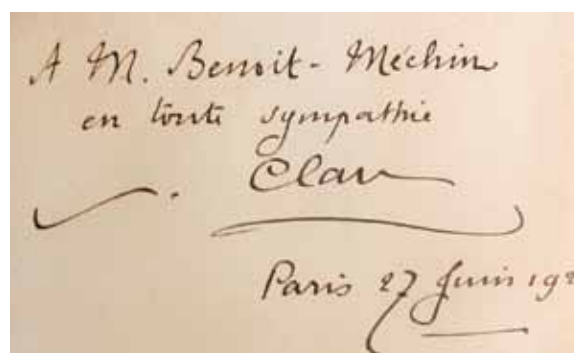 A M. Benoit-Méchin
en toute sympathie
Paris 27 Juin 192